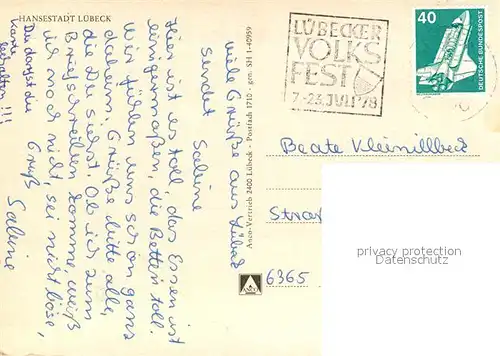 HANSESTADT LÜBECK
viele Grüße aus Lübeck
sendet Sabine
Hier ist es toll, das Essen ist
einigermaßen, die Betten toll.
Wir fühlen uns schon ganz
daheim. Grüße bitte alle,
die Du siehst. Ob ich zum
Briefschreiben komme, weiß
ich noch nicht, sei nicht böse,
Gruß
Sabine
Du darfst die
Karte
behalten!!!
Anco-Vertrieb 2400 Lübeck - Postfach 1710 - gen. SH 1-40959
ANCO
LÜBECKER
VOLKS
FEST
7.-23. JULI '78
40
DEUTSCHE BUNDESPOST
Beate Kleinillbeck
Straß
6365
privacy protection
Datenschutz